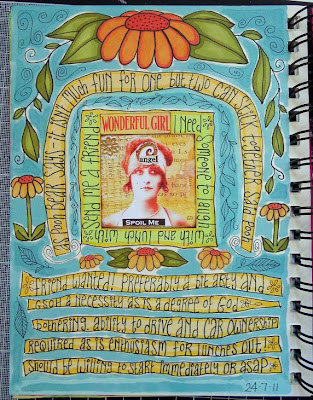 as Pooh Bear says - it isn't much fun for one but two can stick together, said Pooh
Send me a friend
WONDERFUL GIRL
I need
someone 2 laugh
with and lunch with
angel
SPOIL ME
Friend wanted! preferably a bit arty and
GSOH a necessity as is a degree of God
bothering, ability to drive and car ownership
required as is enthusiasm for lunches out
should be willing to start immediately or asap
24-7-11